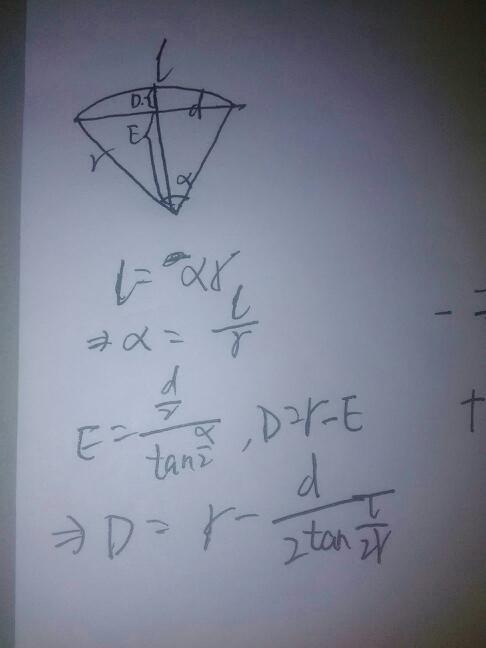 l
D
d
E
r
α
l = αr
⇒ α = l/r
E = (d/2)/(tan α/2), D = r - E
⇒ D = r - d/(2tan l/2r)
- =
+